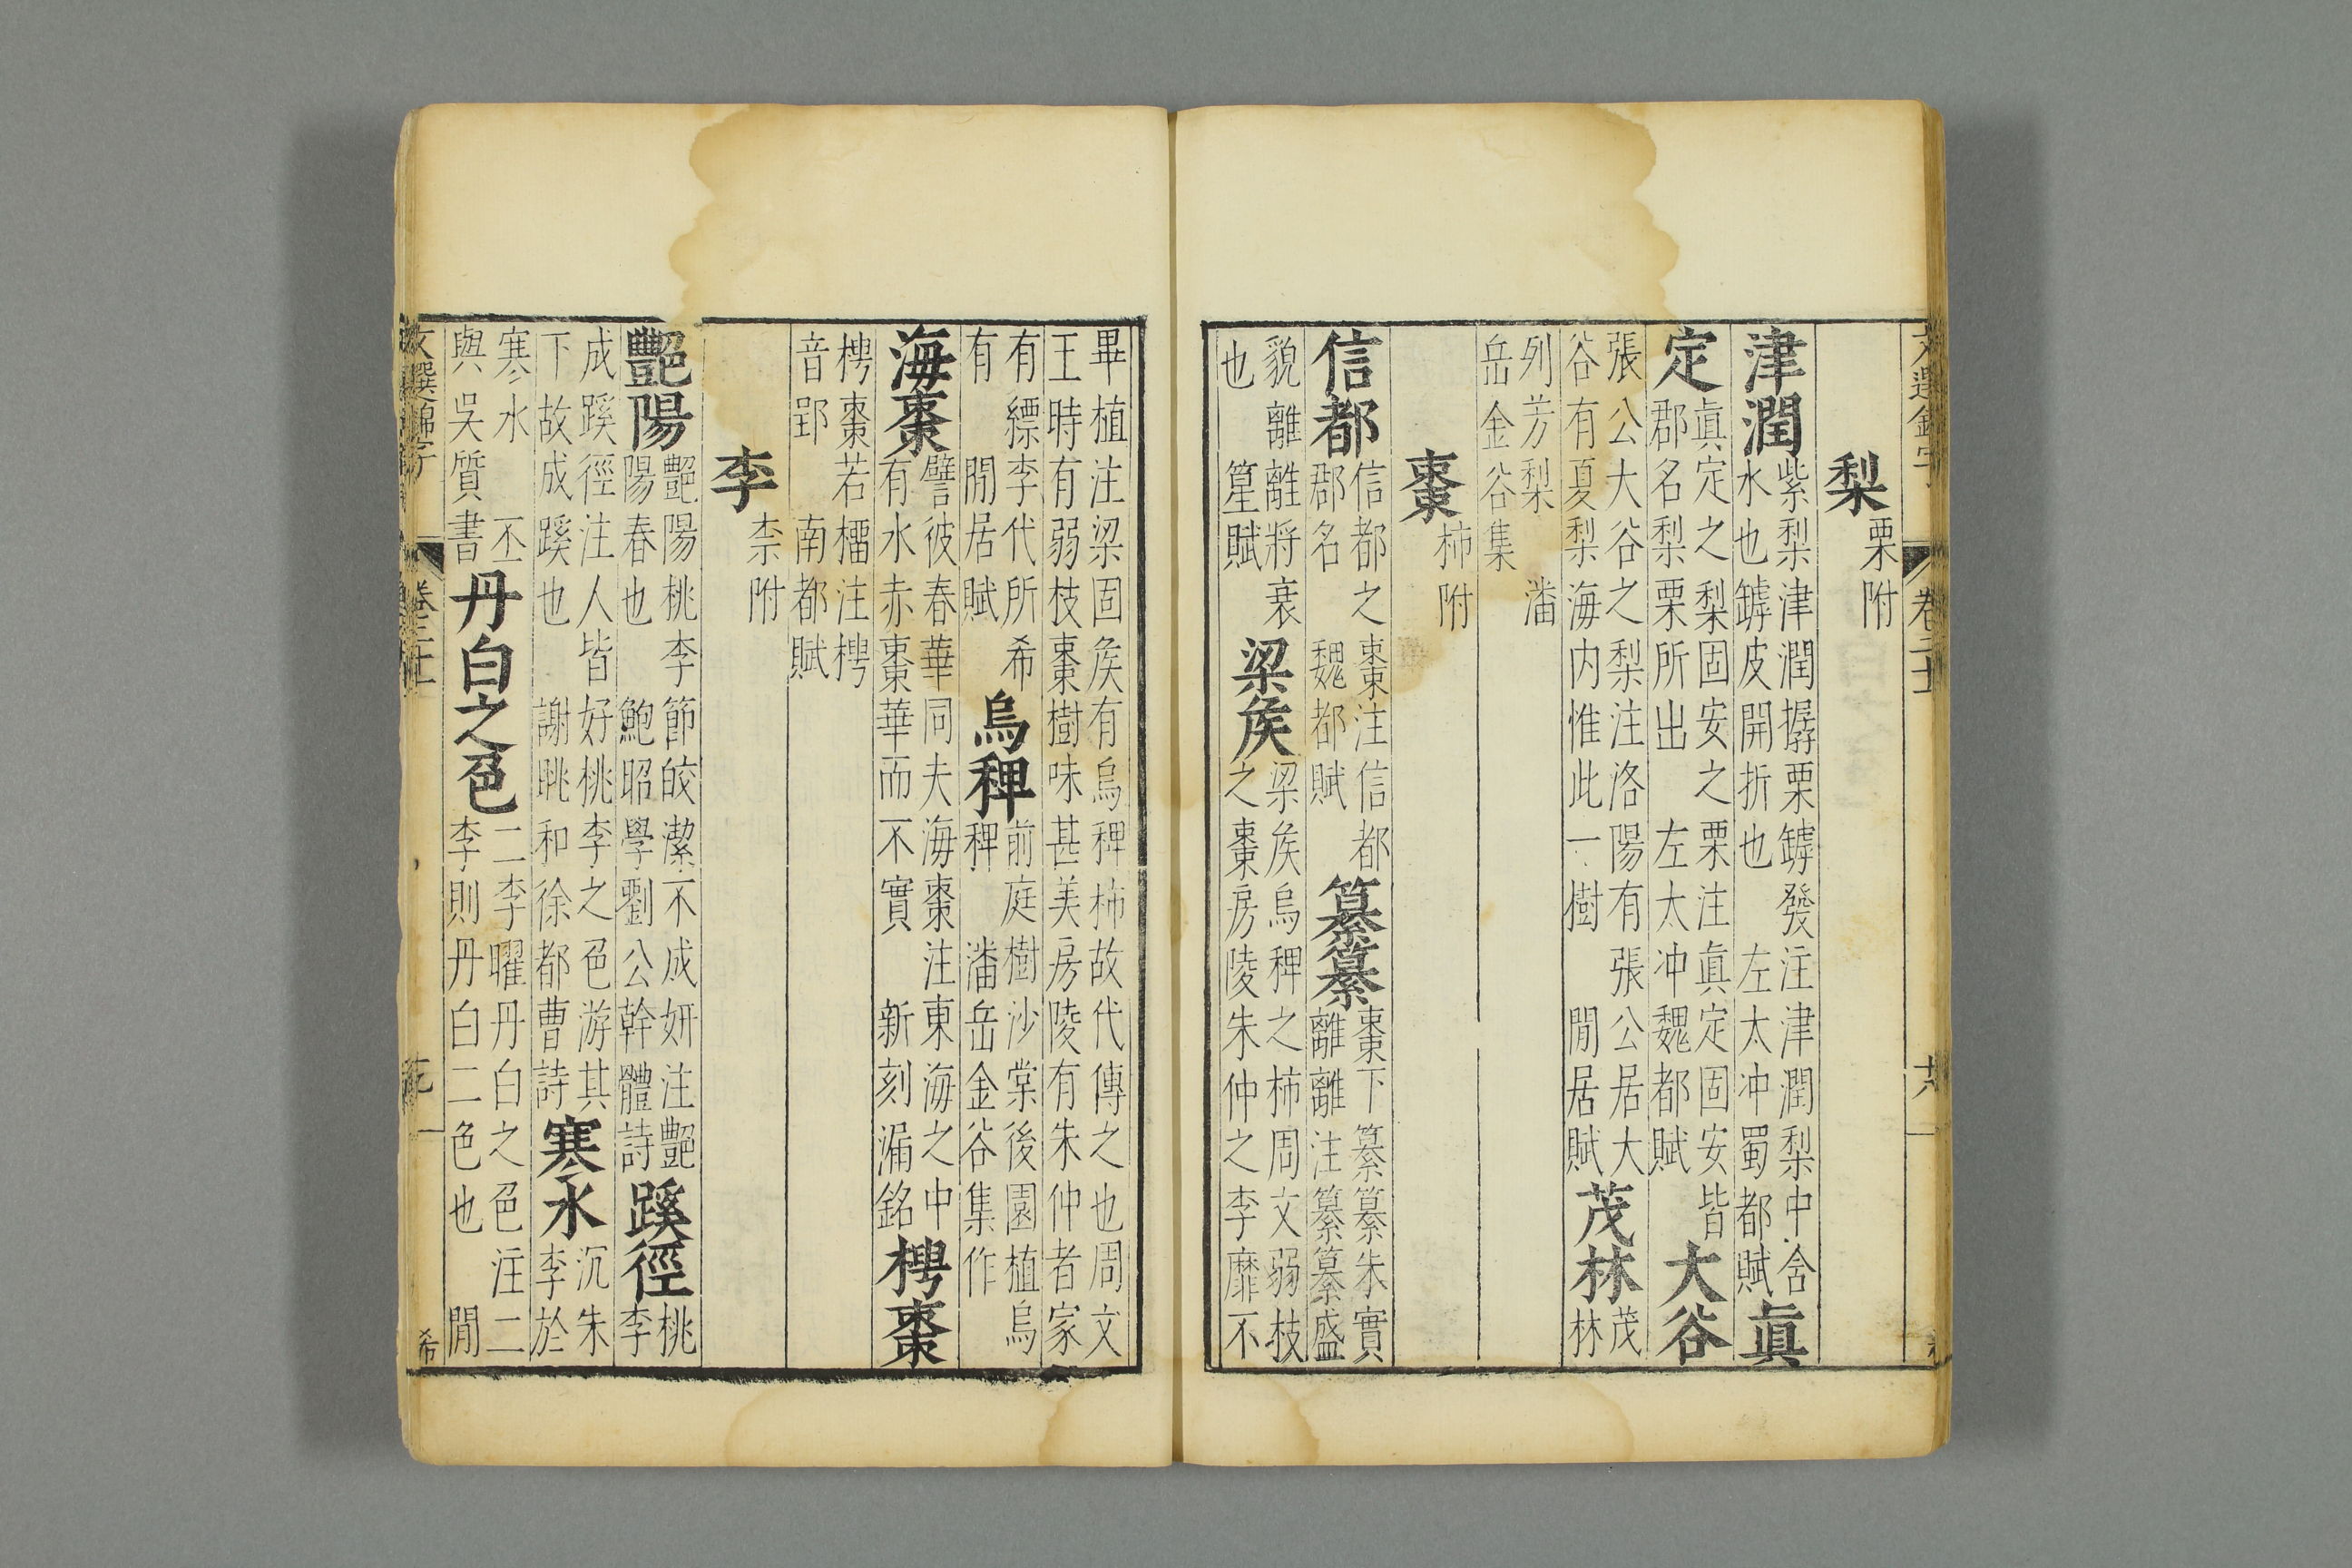 卷二十
梨
栗附
津潤
紫梨津潤樼栗罅發注津潤梨中含
水也罅皮開折也 左太冲蜀都賦
眞
定
眞定之梨固安之栗注眞定固安皆
郡名梨栗所出 左太冲魏都賦
大谷
張公大谷之梨注洛陽有張公居大
谷有夏梨海内惟此一樹 閒居賦
茂林
茂
林
列芳梨 潘
岳金谷集
棗
柿附
信都
信都之棗注信都
郡名 魏都賦
纂纂
棗下纂纂朱實
離離注纂纂盛
貌離離將衰
也 篁賦
梁矦
梁矦烏稗之柿周文弱枝
之棗房陵朱仲之李靡不
畢植注梁固矦有烏稗柿故代傳之也周文
王時有弱枝棗樹味甚美房陵有朱仲者家
有縹李代所希
有 閒居賦
烏稗
前庭樹沙棠後園植烏
稗 潘岳金谷集作
海棗
譬彼春華同夫海棗注東海之中
有水赤棗華而不實 新刻漏銘
梬棗
梬棗若橊注梬
音郢 南都賦
李
柰附
豔陽
豔陽桃李節皎潔不成妍注豔
陽春也 鮑昭學劉公幹體詩
蹊徑
桃
李
成蹊徑注人皆好桃李之色游其
下故成蹊也 謝朓和徐都曹詩
寒水
沉朱
李於
寒水 丕
與吳質書
丹白之色
二李曜丹白之色注二
李則丹白二色也 閒
文選錦字
希